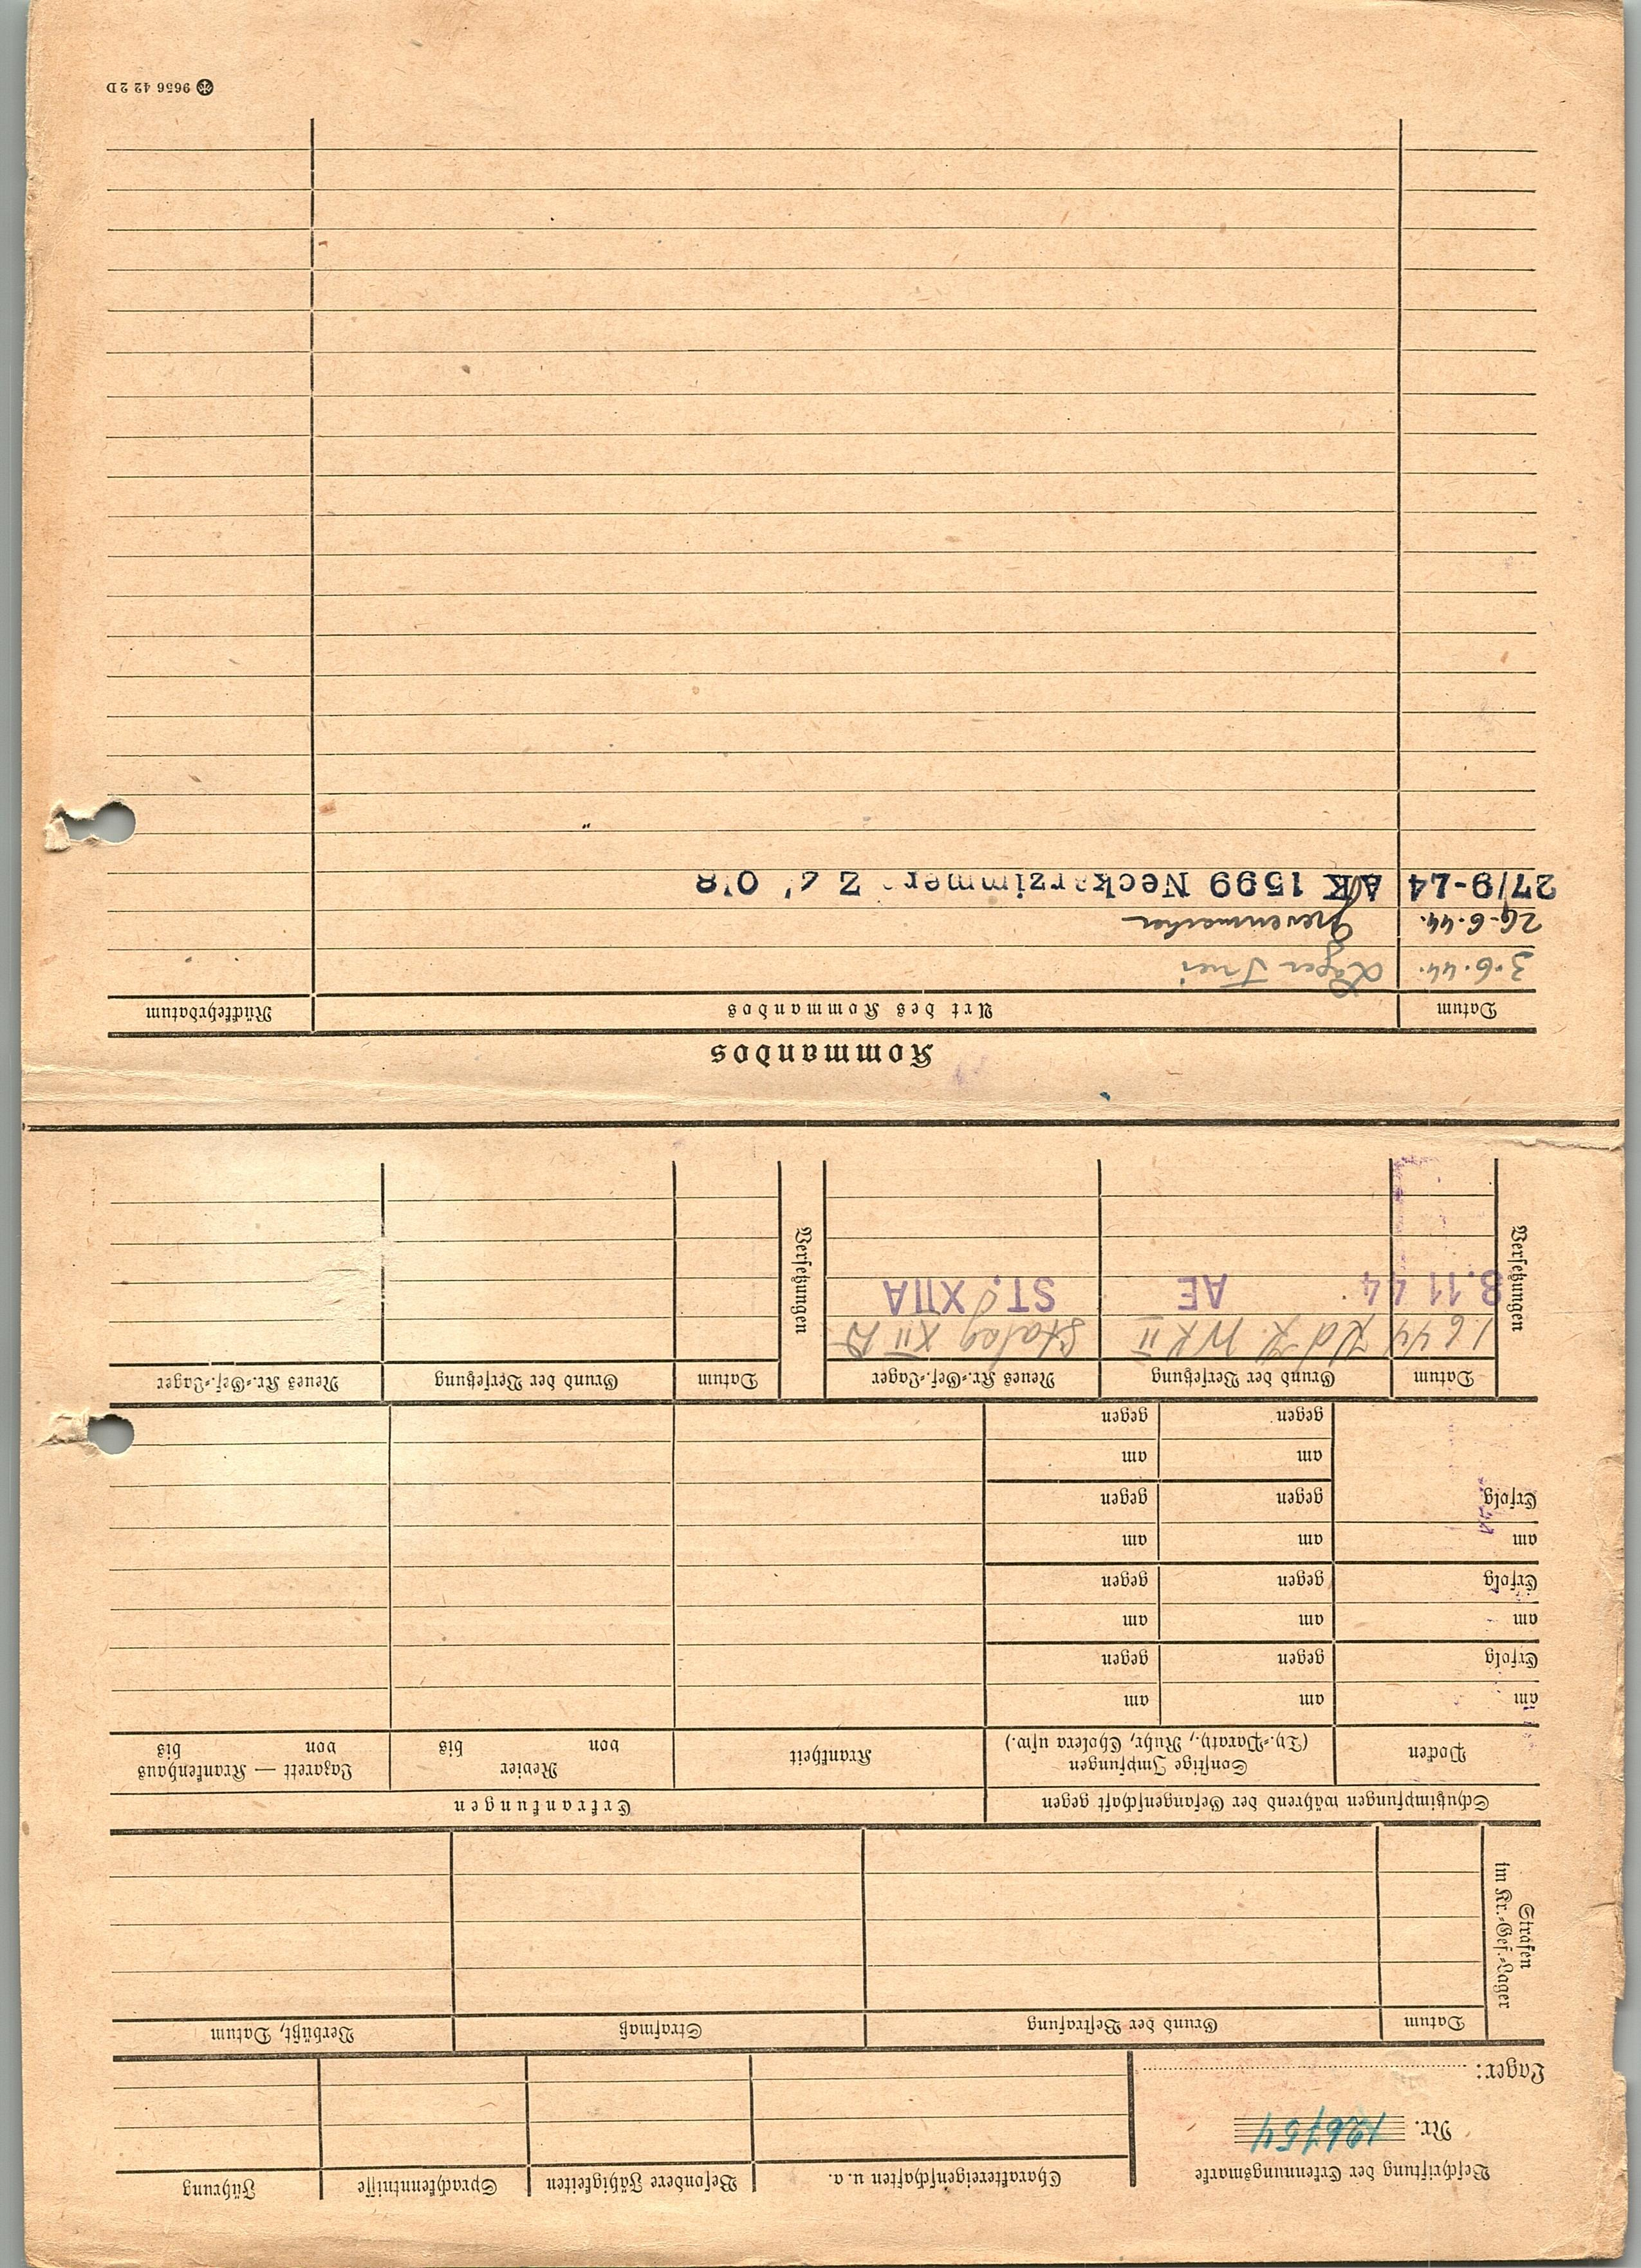 Beschriftung der Erkennungsmarke
Nr. 126754
Lager:
Charaktereigenschaften u. a.
Besondere Fähigkeiten
Sprachkenntnisse
Führung
Strafen
im Kr.=Gef.=Lager
Datum
Grund der Bestrafung
Strafmaß
Verbüßt, Datum
Schutzimpfungen während der Gefangenschaft gegen
Erkrankungen
Pocken
Sonstige Impfungen
(Ty.=Paraty., Ruhr, Cholera usw.)
Krankheit
Revier
von bis
Lazarett — Krankenhaus
von bis
am am am
Erfolg gegen gegen
am am am
Erfolg gegen gegen
am am am
Erfolg gegen gegen
am am
gegen gegen
Versetzungen
Datum Grund der Versetzung Neues Kr.=Gef.=Lager
1.6.44 Stalag XII
8.11 44 AE ST. XIIA
Versetzungen
Datum Grund der Versetzung Neues Kr.=Gef.=Lager
Kommandos
Datum Art des Kommandos Rückkehrdatum
3.6.44. Lager Trier
29.6.44. Grevenmacher
27/9-44 AK 1599 Neckarzimmern
9656 42 2 D